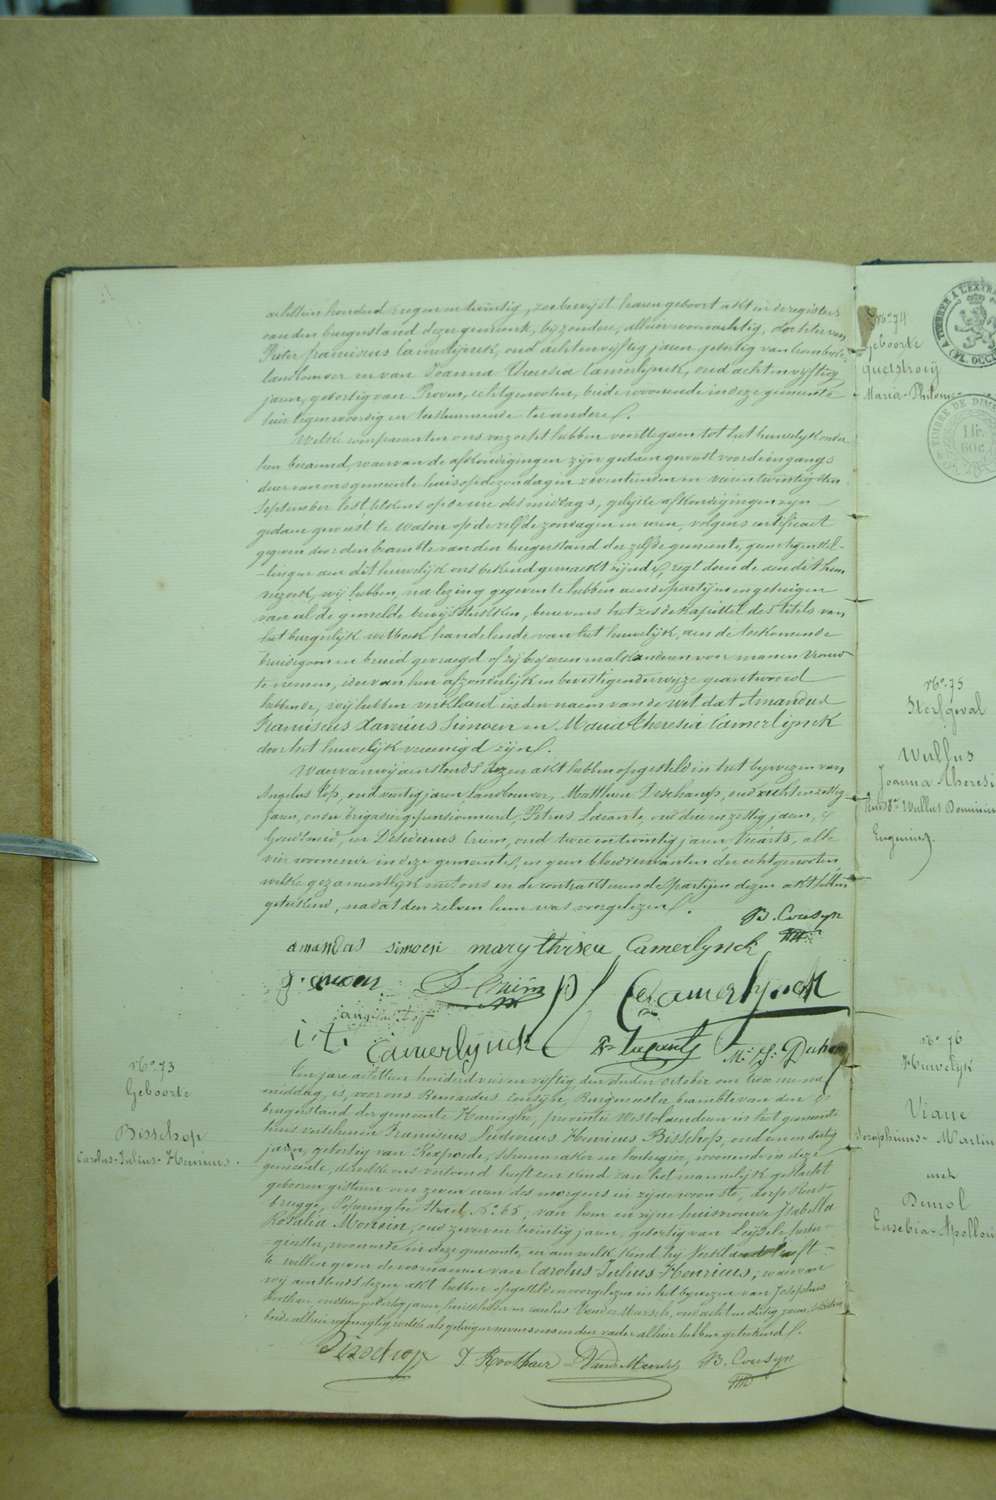 achttien honderd negen en twintig, zoo bewyst haren geboort akt in de registers
van den burgerstand dezer gemeente, byzondere, alhier woonachtig, dochter van
Pieter Franciscus Camerlijnck, oud acht en vyftig jaren, geboortig van
landbouwer en van Joanna Theresia Camerlijnck, oud acht en vyftig
jaren, geboortig van Proven, echtgenooten, beide woonende in deze gemeente
hier tegenwoordig en toestemmende ter andere.
Welke comparanten ons verzocht hebben voorttegaen tot het huwelyk onder
hen beraemd, waervan de afkondigingen zyn gedaen geweest voor den ingang
deur van ons gemeente huis op de zondagen zeventienden en vier en twintigsten
September lest, ten elf uren des middags, gelyke afkondigingen zyn
gedaen geweest te Watou op de zelfde zondagen en uren, volgens certificaet
gegeven door den beambte van den burgerstand der zelfde gemeente, geene tegenstel-
-lingen aen dit huwelyk ons bekend gemaekt zynde, regt doende aen dit hun
verzoek, wy hebben, na lezing gegeven te hebben aen de partyen en getuigen
van al de gemelde bewysstukken, benevens het zesde kapittel des titels van
het burgerlyk wetboek handelende van het huwelyk, aen de toekomende
bruidegom en bruid gevraegd of zy begeeren malkanderen voor man en vrouw
te nemen, ider van hun afzonderlyk en bevestigender wyze geantwoord
hebbende, wy hebben verklaerd in den naem van de wet dat Amandus
Franciscus Xaverius Simoen en Maria Theresia Camerlijnck
door het huwelyk vereenigd zyn.
Waervan wy aenstonds dezen akt hebben opgesteld in het bywezen van
Angelus Top, oud veertig jaren, landbouwer, Mattheus Deschamp, oud acht en zestig
jaren, onder brigadier gepensionneerd, Petrus Lacante, oud drie en zestig jaren,
Goudsmid, en Desiderius Cruim, oud twee en twintig jaren, alle
vier woonende in deze gemeente, en geen bloedverwanten der echtgenooten,
welke gezamentlyk met ons en de contrakteerende partyen dezen akt hebben
geteekend, na dat den zelven hun was voorgelezen.
B. Cousyn
amandus simoen mary thresia Camerlynck
D. Cruim p f Camerlynck
ange top
i. t. Camerlynck
Nº 73
Geboorte
Bisschop
Carolus-Julius-Henricus.
Ten jare achttien honderd vier en vyftig den derden October om twee uren na
middag, is, voor ons Bernardus Cousyn, Burgmeester beambte van den
burgerstand der gemeente Haringhe, provintie Westvlaenderen in het gemeente
huis verschenen Franciscus Ludovicus Henricus Bisschop, oud een en dertig
jaren, geboortig van Rexpoede, schoenmaker en herbergier, woonende in deze
gemeente, den welken ons vertoond heeft een kind van het mannelyk geslacht
geboren gisteren om zeven uren des morgens in zyne woonste, dorp Rous-
brugge, Poperinghe Straet Nº 65, van hem en zyne huisvrouwe Isabella
Rosalia Monsoin, oud zeven en twintig jaren, geboortig van Leysele, herber-
-gierster, woonende in deze gemeente, en aen welk kind hy verklaerd heeft
te willen geven de voornamen van Carolus Julius Henricus; waer van
wy aenstonds dezen akt hebben opgesteld en voorgelezen in het bywezen van Josephus
beide alhier woonachtig, welke als getuigen nevens ons en den vader alhier hebben geteekend.
Bisschop J. Roothaer B. Cousyn
Nº 74
Geboorte
Quetstroey
Maria-Philom
Nº 75
Sterfgeval
Wullus
Joanna Theresi
Wullus Dominicus
Eugenius
Nº 76
Huwelyk
Viane
Seraphinus-Martin
met
Demol
Eusebia-Apolloni
TIMBRE DE DIM
1 fr.
60 c.